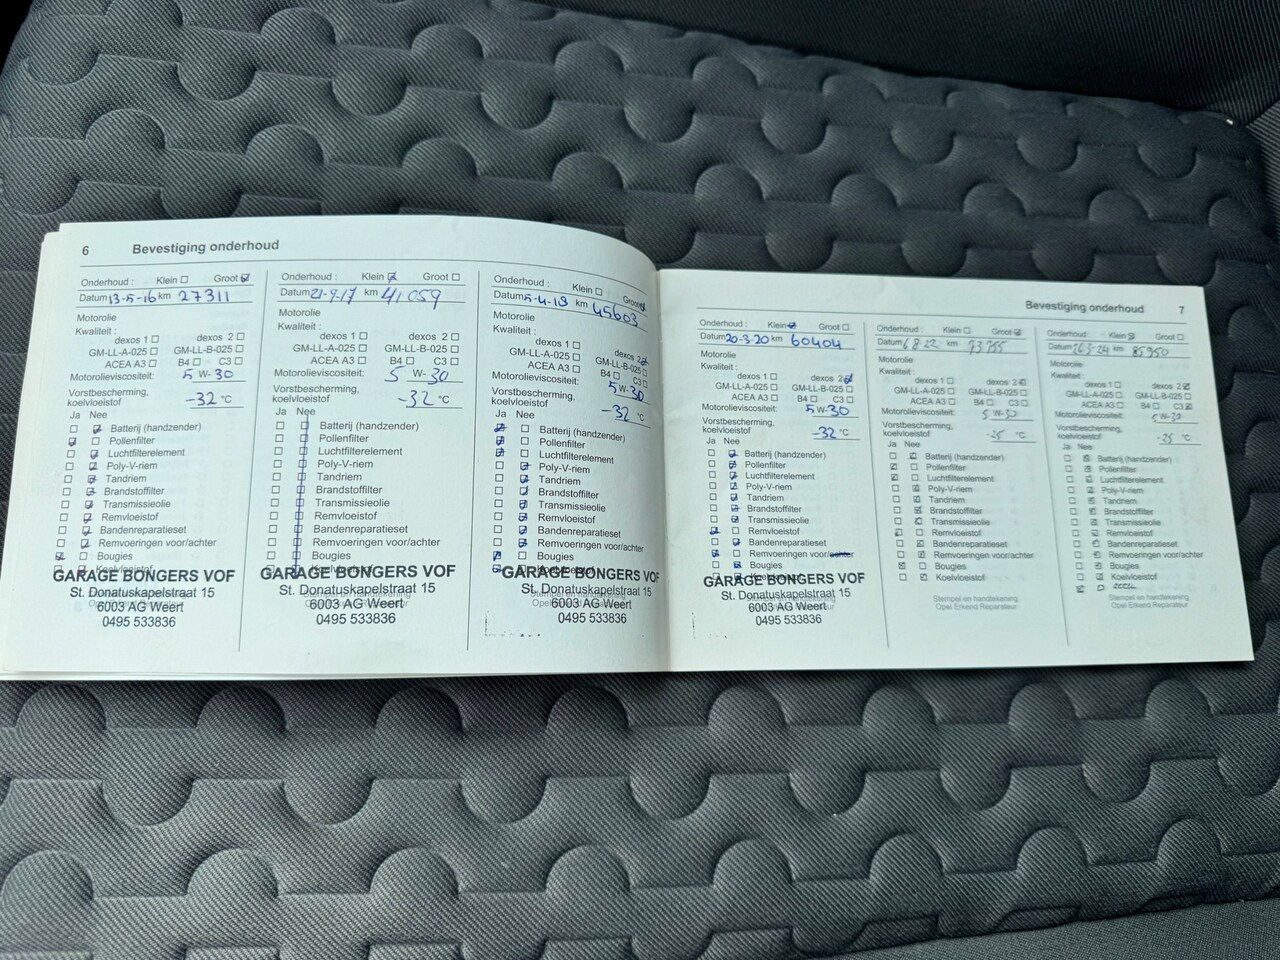 6 Bevestiging onderhoud
Onderhoud : Klein Groot
Datum 13-5-16 km 27311
Motorolie
Kwaliteit :
dexos 1 dexos 2
GM-LL-A-025 GM-LL-B-025
ACEA A3 B4 C3
Motorolieviscositeit: 5 W-30
Vorstbescherming,
koelvloeistof -32 °C
Ja Nee
Batterij (handzender)
Pollenfilter
Luchtfilterelement
Poly-V-riem
Tandriem
Brandstoffilter
Transmissieolie
Remvloeistof
Bandenreparatieset
Remvoeringen voor/achter
Bougies
Koelvloeistof
GARAGE BONGERS VOF
St. Donatuskapelstraat 15
6003 AG Weert
0495 533836
Onderhoud : Klein Groot
Datum 21-9-17 km 41059
Motorolie
Kwaliteit :
dexos 1 dexos 2
GM-LL-A-025 GM-LL-B-025
ACEA A3 B4 C3
Motorolieviscositeit: 5 W-30
Vorstbescherming,
koelvloeistof -32 °C
Ja Nee
Batterij (handzender)
Pollenfilter
Luchtfilterelement
Poly-V-riem
Tandriem
Brandstoffilter
Transmissieolie
Remvloeistof
Bandenreparatieset
Remvoeringen voor/achter
Bougies
Koelvloeistof
GARAGE BONGERS VOF
St. Donatuskapelstraat 15
Stempel en handtekening
6003 AG Weert
0495 533836
Onderhoud : Klein Groot
Datum 5-4-19 km 45603
Motorolie
Kwaliteit :
dexos 1 dexos 2
GM-LL-A-025 GM-LL-B-025
ACEA A3 B4 C3
Motorolieviscositeit: 5 W-30
Vorstbescherming,
koelvloeistof -32 °C
Ja Nee
Batterij (handzender)
Pollenfilter
Luchtfilterelement
Poly-V-riem
Tandriem
Brandstoffilter
Transmissieolie
Remvloeistof
Bandenreparatieset
Remvoeringen voor/achter
Bougies
GARAGE BONGERS VOF
St. Donatuskapelstraat 15
Stempel en handtekening
6003 AG Weert
0495 533836
Bevestiging onderhoud 7
Onderhoud : Klein Groot
Datum 20-3-20 km 60404
Motorolie
Kwaliteit :
dexos 1 dexos 2
GM-LL-A-025 GM-LL-B-025
ACEA A3 B4 C3
Motorolieviscositeit: 5 W-30
Vorstbescherming,
koelvloeistof -32 °C
Ja Nee
Batterij (handzender)
Pollenfilter
Luchtfilterelement
Poly-V-riem
Tandriem
Brandstoffilter
Transmissieolie
Remvloeistof
Bandenreparatieset
Remvoeringen voor/achter
Bougies
Koelvloeistof
GARAGE BONGERS VOF
St. Donatuskapelstraat 15
6003 AG Weert
0495 533836
Onderhoud : Klein Groot
Datum 6 8-22 km 73755
Motorolie
Kwaliteit :
dexos 1 dexos 2
GM-LL-A-025 GM-LL-B-025
ACEA A3 B4 C3
Motorolieviscositeit: 5 W-30
Vorstbescherming,
koelvloeistof -25 °C
Ja Nee
Batterij (handzender)
Pollenfilter
Luchtfilterelement
Poly-V-riem
Tandriem
Brandstoffilter
Transmissieolie
Remvloeistof
Bandenreparatieset
Remvoeringen voor/achter
Bougies
Koelvloeistof
Stempel en handtekening
Opel Erkend Reparateur
Onderhoud : Klein Groot
Datum 26-3-24 km 85950
Motorolie
Kwaliteit :
dexos 1 dexos 2
GM-LL-A-025 GM-LL-B-025
ACEA A3 B4 C3
Motorolieviscositeit: 5 W-30
Vorstbescherming,
koelvloeistof -25 °C
Ja Nee
Batterij (handzender)
Pollenfilter
Luchtfilterelement
Poly-V-riem
Tandriem
Brandstoffilter
Transmissieolie
Remvloeistof
Bandenreparatieset
Remvoeringen voor/achter
Bougies
Koelvloeistof
Stempel en handtekening
Opel Erkend Reparateur